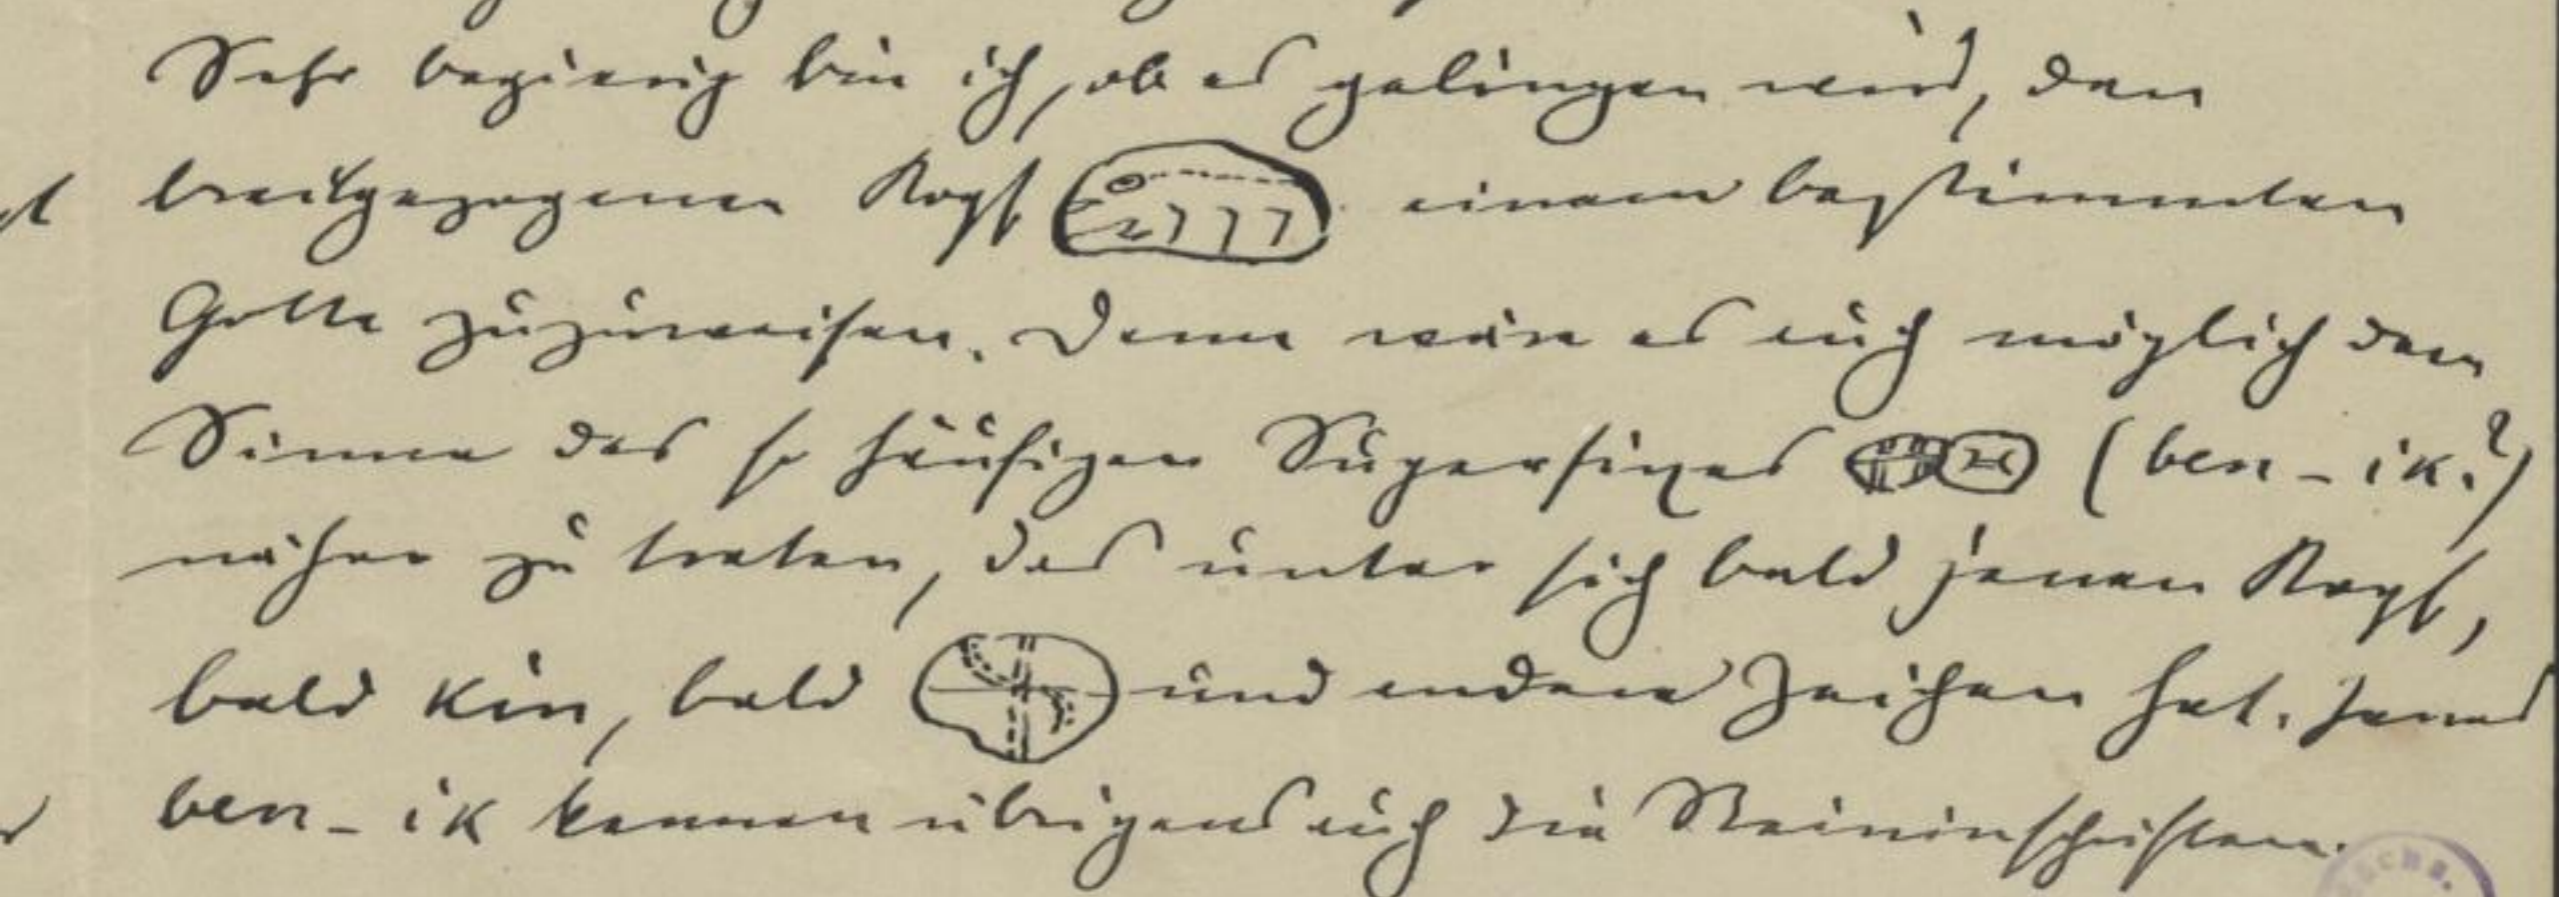 Sehr begierig bin ich, ob es gelingen wird, den
breitgezogenen Kopf einem bestimmten
Gotte zuzuweisen. Denn wäre es auch möglich dem
Sinne des so häufigen Superfixes (ben-ik?)
näher zu treten, das unter sich bald jenen Kopf,
bald kin, bald und andere Zeichen hat. Jenes
ben-ik kennen übrigens auch die Steininschriften.